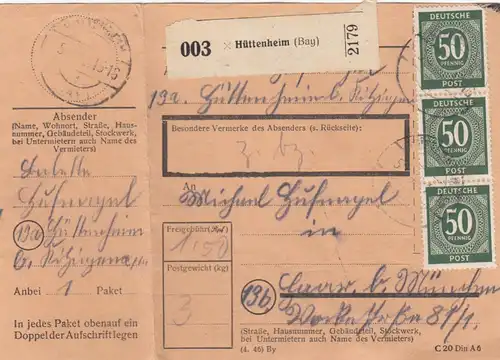 003 Hüttenheim (Bay)
2179
DEUTSCHE
50
PFENNIG
POST
DEUTSCHE
50
PFENNIG
POST
DEUTSCHE
50
PFENNIG
POST
Absender
(Name, Wohnort, Straße, Haus-
nummer, Gebäudeteil, Stockwerk,
bei Untermietern auch Name des
Vermieters)
Hufnagel
13a Hüttenheim
b. Kitzingen
Anbei 1 Paket
In jedes Paket obenauf ein
Doppel der Aufschrift legen
13a Hüttenheim b. Kitzingen
Besondere Vermerke des Absenders (s. Rückseite):
An
Michael Hufnagel
in
Freigebühr (RM)
1,50
Postgewicht (kg)
3
13b
b. München
81/1.
(Straße, Hausnummer, Gebäudeteil, Stockwerk,
bei Untermietern auch Name des Vermieters)
(4. 46) By
C 20 Din A 6